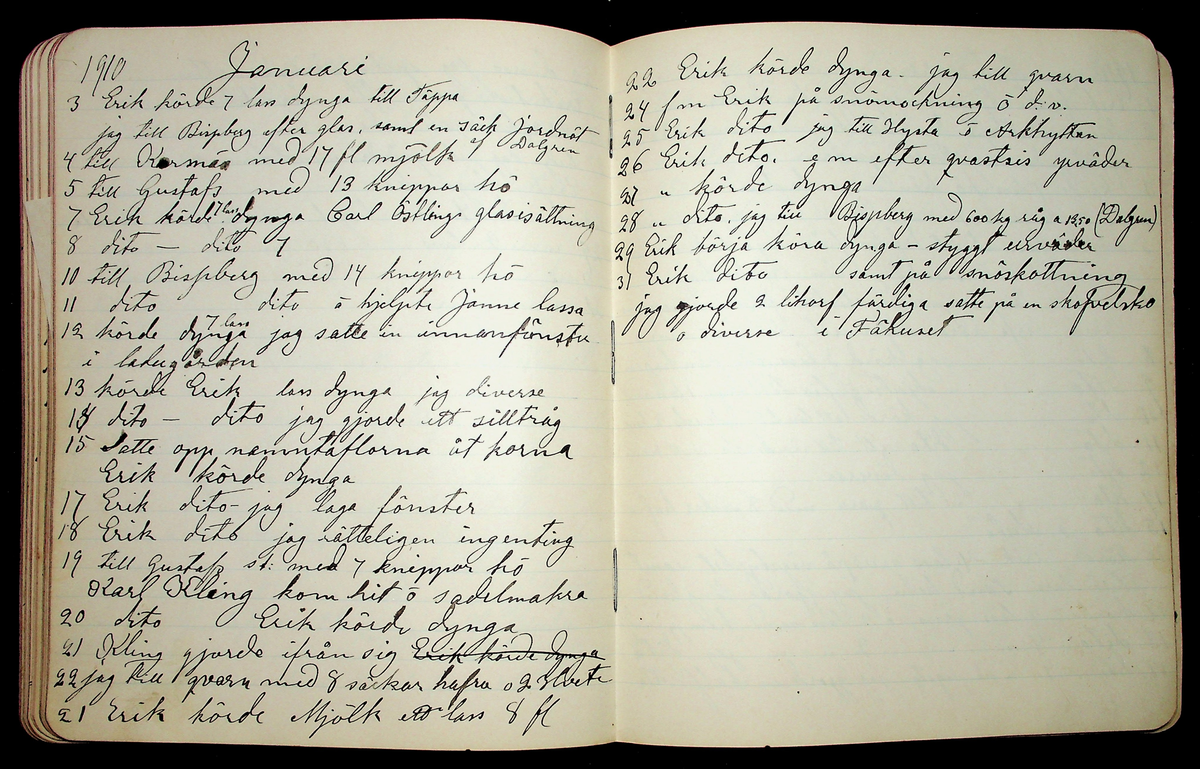 1910 Januari
3 Erik körde 7 lass dynga till Täppa
jag till Bispberg efter glas, samt en säck Jordnöt
af Dalgren
4 till med 17 fl mjölk
5 till Gustafs med 13 knippor hö
7 Erik körde 7 lass dynga Carl Östlings glasisättning
8 dito — dito 7
10 till Bispberg med 14 knippor hö
11 dito dito o hjelpte Janne lassa
12 körde 7 lass dynga jag satte in innanfönstu
i ladugården
13 körde Erik lass dynga jag diverse
14 dito — dito jag gjorde ett silltråg
15 Satte opp namntaflorna åt korna
Erik körde dynga
17 Erik dito - jag laga fönster
18 Erik dito jag rätteligen ingenting
19 till Gustafs st: med 7 knippor hö
Karl Kling kom hit o sadelmakra
20 dito Erik körde dynga
21 Kling gjorde ifrån sig Erik körde dynga
22 jag till qvarn med 8 säckar hafra o 2 Hvete
21 Erik körde Mjölk ett lass 8 fl
22 Erik körde dynga - jag till qvarn
24 fm Erik på snömockning o div.
25 Erik dito jag till Hysta o Arkhyttan
26 Erik dito. em efter qvastris yrväder
27 " körde dynga
28 " dito, jag till Bispberg med 600 kg råg a 13,50 (Dalgren)
29 Erik börja köra dynga - styggt urväder
31 Erik dito samt på snöskottning
jag gjorde 2 likorf färdiga satte på en skofvelsko
o diverse i Fähuset